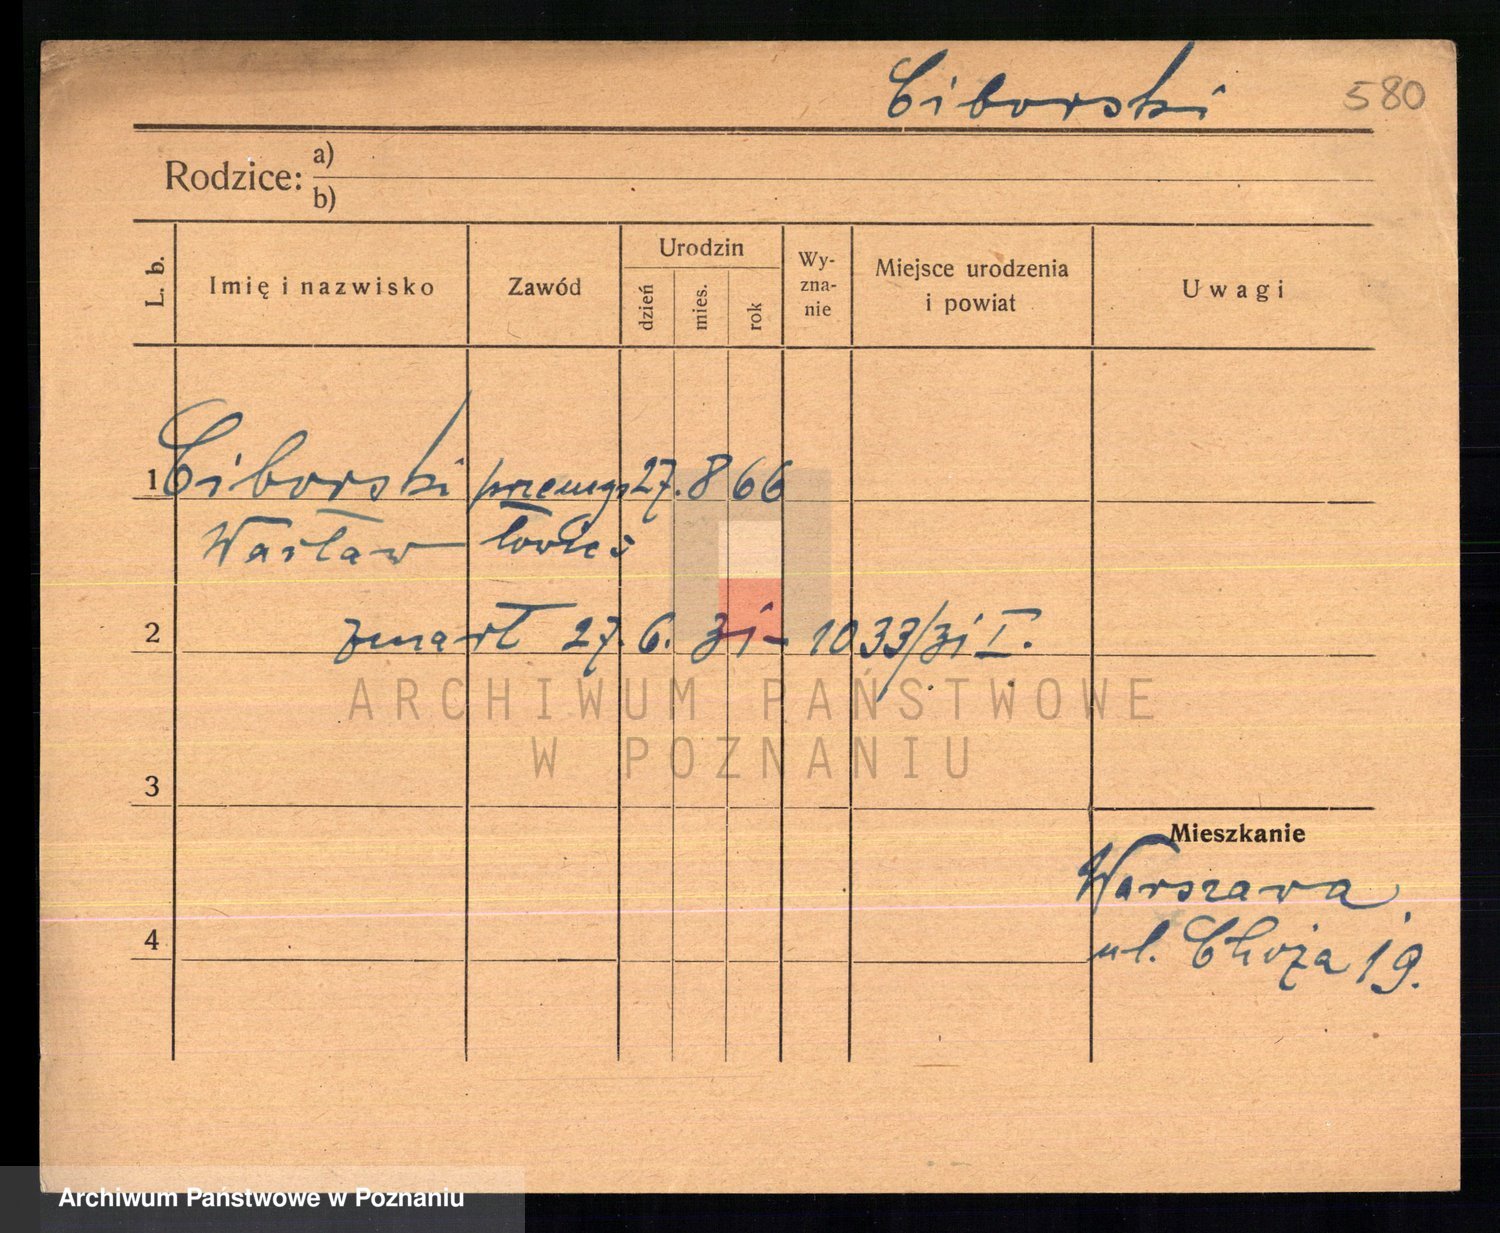 Ciborski 580
Rodzice: a)
b)
L. b. Imię i nazwisko Zawód Urodzin dzień mies. rok Wy-zna-nie Miejsce urodzenia i powiat Uwagi
1 Ciborski przemy 27. 8 66
Wacław
2 zmarł 27. 6. 31 - 1033/31 I.
ARCHIWUM PAŃSTWOWE
W POZNANIU
3
Mieszkanie
Warszawa,
4 ul. Choża 19.
Archiwum Państwowe w Poznaniu